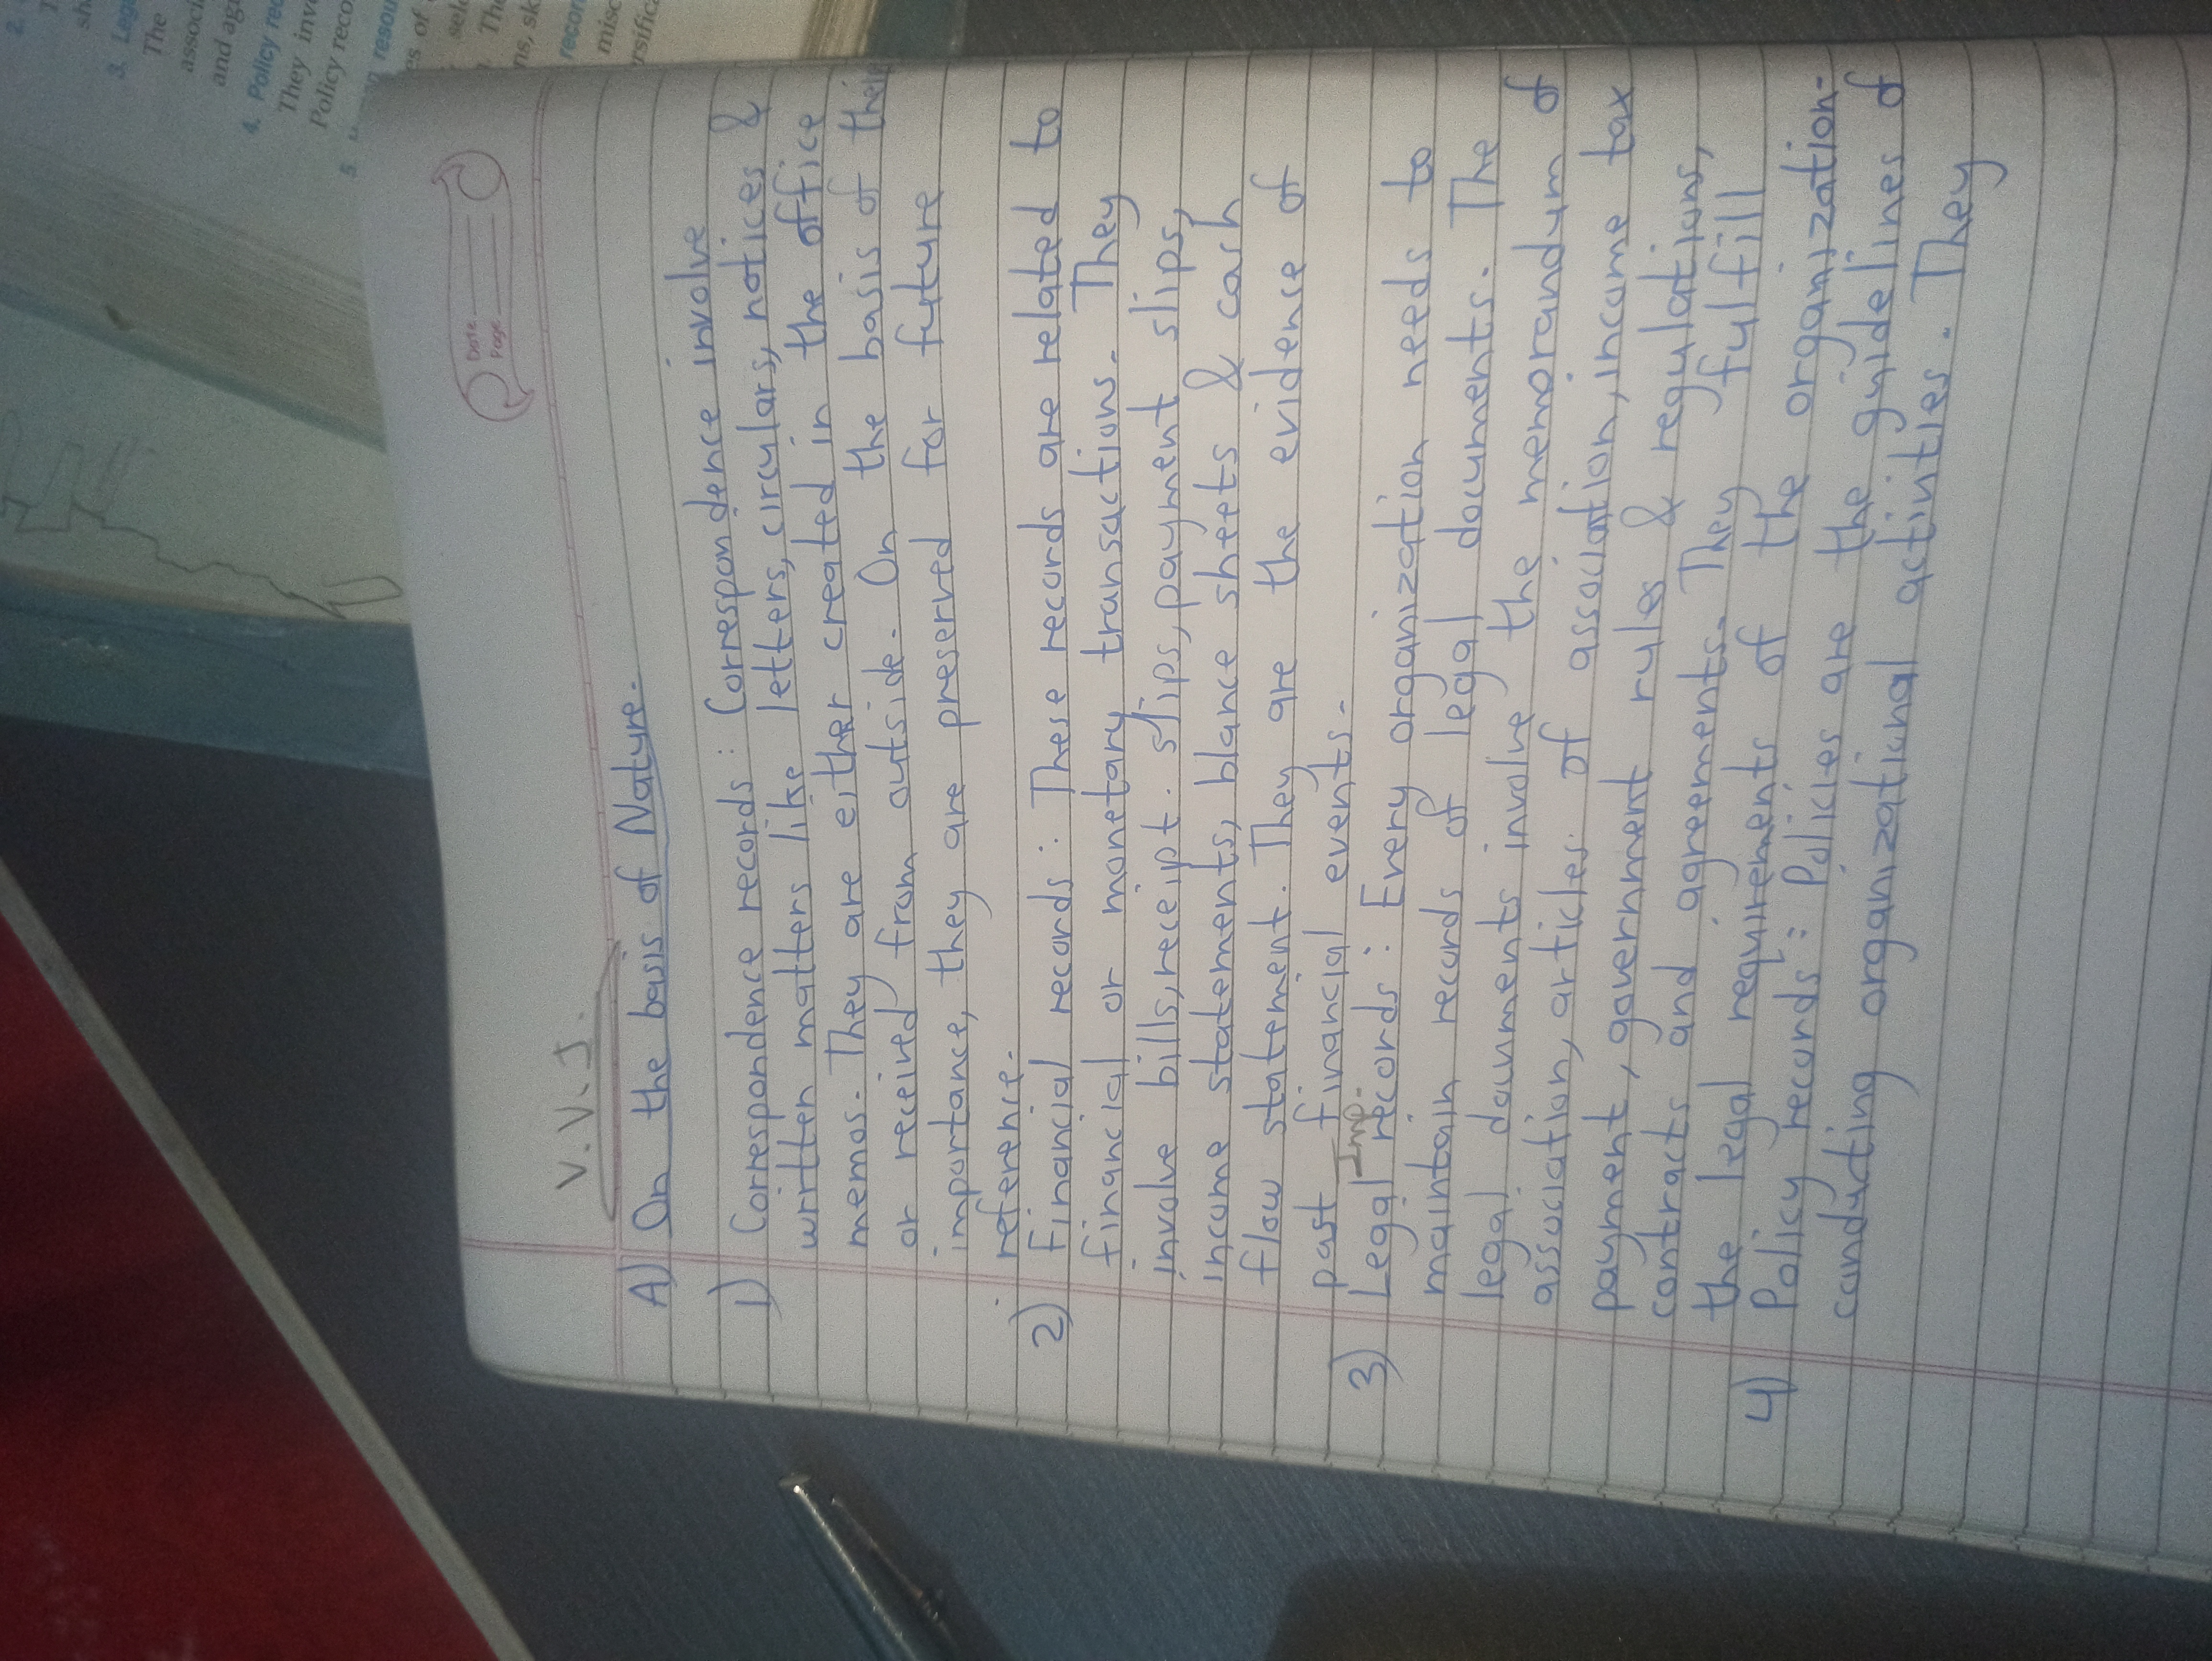 Date
Page
V.V.I.
A) On the basis of Nature.
1) Correspondence records : Correspondence involve
written matters like letters, circulars, notices &
memos. They are either created in the office
or received from outside. On the basis of their
importance, they are preserved for future
reference.
2) Financial records : These records are related to
financial or monetary transactions. They
involve bills, receipt. slips, payment slips,
income statements, blance sheets & cash
flow statement. They are the evidence of
past financial events.
Imp.
3) Legal records : Every organization needs to
maintain records of legal documents. The
legal documents involve the memorandum of
association, articles of association, income tax
payment, government rules & regulations,
contracts and agreements. They fulfill
the legal requirements of the organization.
4) Policy records : Policies are the guidelines of
conducting organizational activities. They
2.
3. Leg
The
associ
and ag
4. Policy rec
They inv
Policy reco
5.
resou
es of
sele
The
ns, sk
recor
misc
rsific